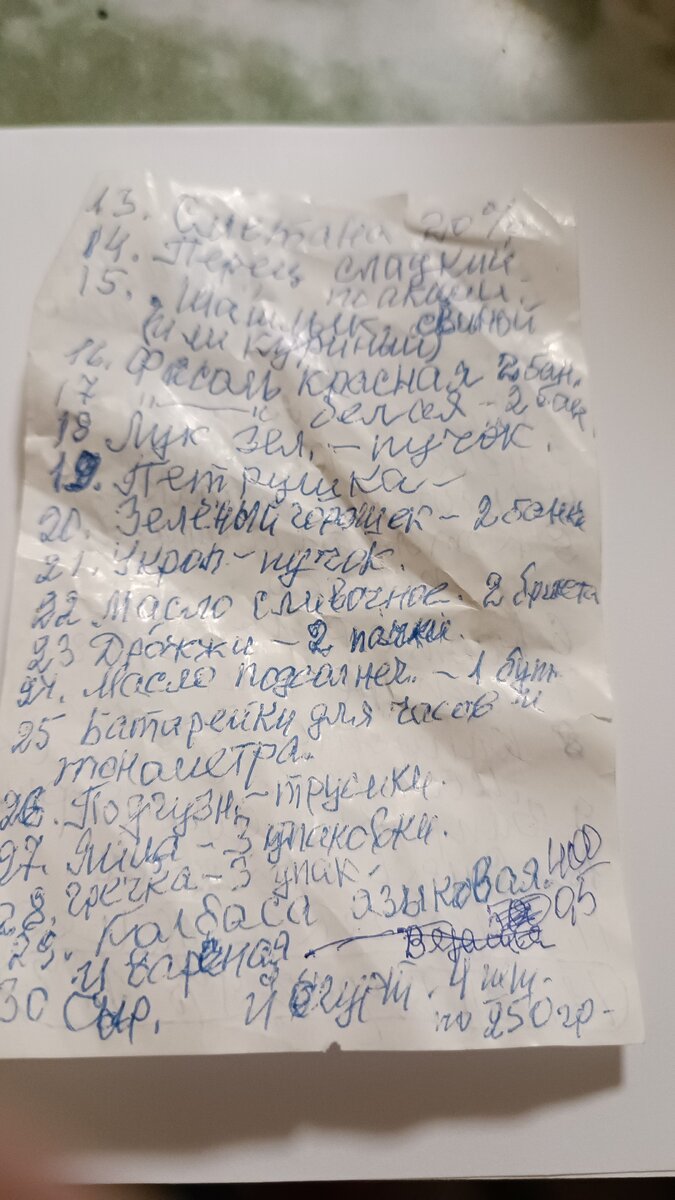 13. Сметана 20%
14. Перец сладкий.
15. Шашлык свиной
(или куриный)
16. Фасоль красная 2 бан.
17 "——" белая - 2 бан.
18 Лук зел. - пучок.
19. Петрушка -
20. Зелёный горошек - 2 банки
21. Укроп - пучок.
22 Масло сливочное. 2 брикета
23 Дрожжи - 2 пачки.
24. Масло подсолнеч. - 1 бут.
25 Батарейки для часов и
тонометра.
26. Подгузн. - трусики.
27. Яйца - 3 упаковки.
28. гречка - 3 упак.
29. Колбаса языковая. 400
и варёная Вязанка 0,5
30 Сыр. Йогурт. 4 шт.
по 250 гр.